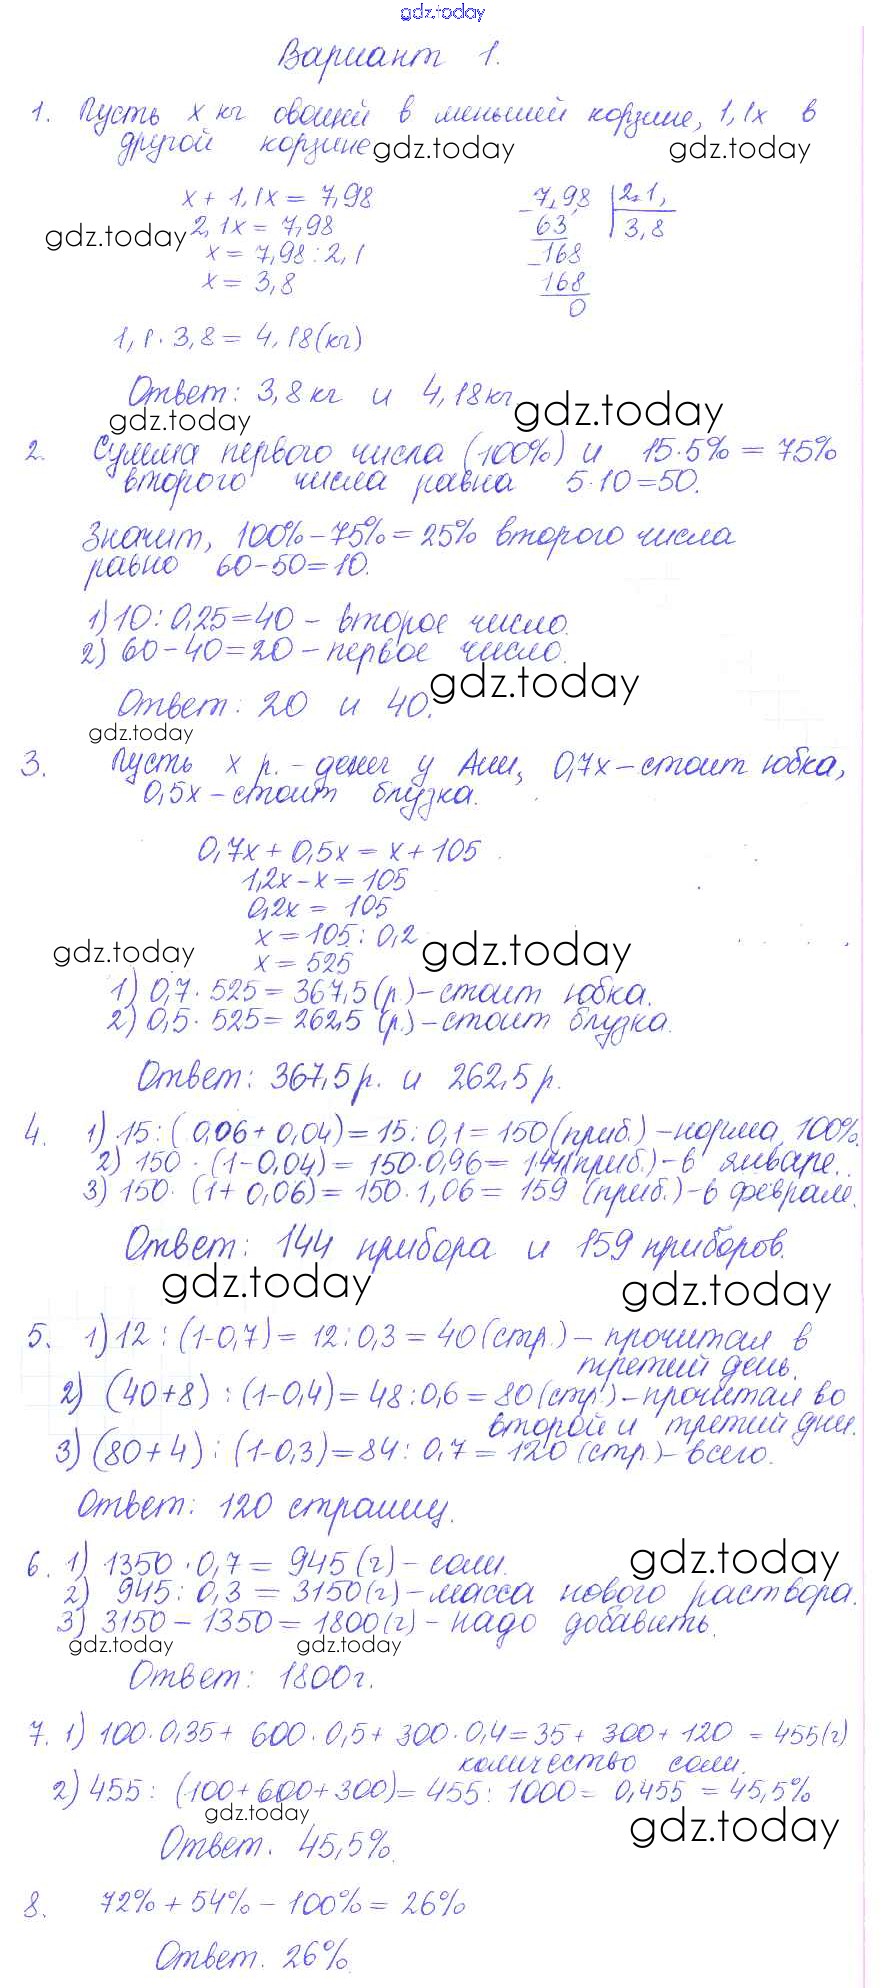 gdz.today
Вариант 1.
1. Пусть x кг овощей в меньшей корзине, 1,1x в
другой корзине gdz.today gdz.today
x + 1,1x = 7,98
2,1x = 7,98
gdz.today
x = 7,98 : 2,1
x = 3,8
7,98 | 2,1
63 | 3,8
168
168
0
1,1 · 3,8 = 4,18 (кг)
Ответ: 3,8 кг и 4,18 кг gdz.today
gdz.today
2. Сумма первого числа (100%) и 15·5% = 75%
второго числа равна 5·10=50.
Значит, 100%-75%=25% второго числа
равно 60-50=10.
1) 10 : 0,25=40 - второе число.
2) 60-40=20 - первое число.
Ответ: 20 и 40. gdz.today
gdz.today
3. Пусть x р. - денег у Ани, 0,7x - стоит юбка,
0,5x - стоит блузка.
0,7x + 0,5x = x + 105
1,2x - x = 105
0,2x = 105
x = 105 : 0,2
gdz.today x = 525 gdz.today
1) 0,7 · 525 = 367,5 (р.) - стоит юбка.
2) 0,5 · 525 = 262,5 (р.) - стоит блузка.
Ответ: 367,5 р. и 262,5 р.
4. 1) 15 : (0,06 + 0,04) = 15 : 0,1 = 150 (приб.) - норма, 100%.
2) 150 · (1-0,04) = 150·0,96 = 144 (приб.) - в январе.
3) 150 · (1 + 0,06) = 150 · 1,06 = 159 (приб.) - в феврале.
Ответ: 144 прибора и 159 приборов.
gdz.today gdz.today
5. 1) 12 : (1-0,7) = 12 : 0,3 = 40 (стр.) - прочитал в
третий день.
2) (40+8) : (1-0,4) = 48 : 0,6 = 80 (стр.) - прочитал во
второй и третий дни.
3) (80+4) : (1-0,3) = 84 : 0,7 = 120 (стр.) - всего.
Ответ: 120 страниц.
6. 1) 1350 · 0,7 = 945 (г) - соли. gdz.today
2) 945 : 0,3 = 3150 (г) - масса нового раствора.
3) 3150 - 1350 = 1800 (г) - надо добавить.
gdz.today gdz.today
Ответ: 1800 г.
7. 1) 100·0,35 + 600·0,5 + 300·0,4 = 35 + 300 + 120 = 455 (г)
количество соли.
2) 455 : (100+600+300) = 455 : 1000 = 0,455 = 45,5%
gdz.today gdz.today
Ответ. 45,5%.
8. 72% + 54% - 100% = 26%
Ответ. 26%.